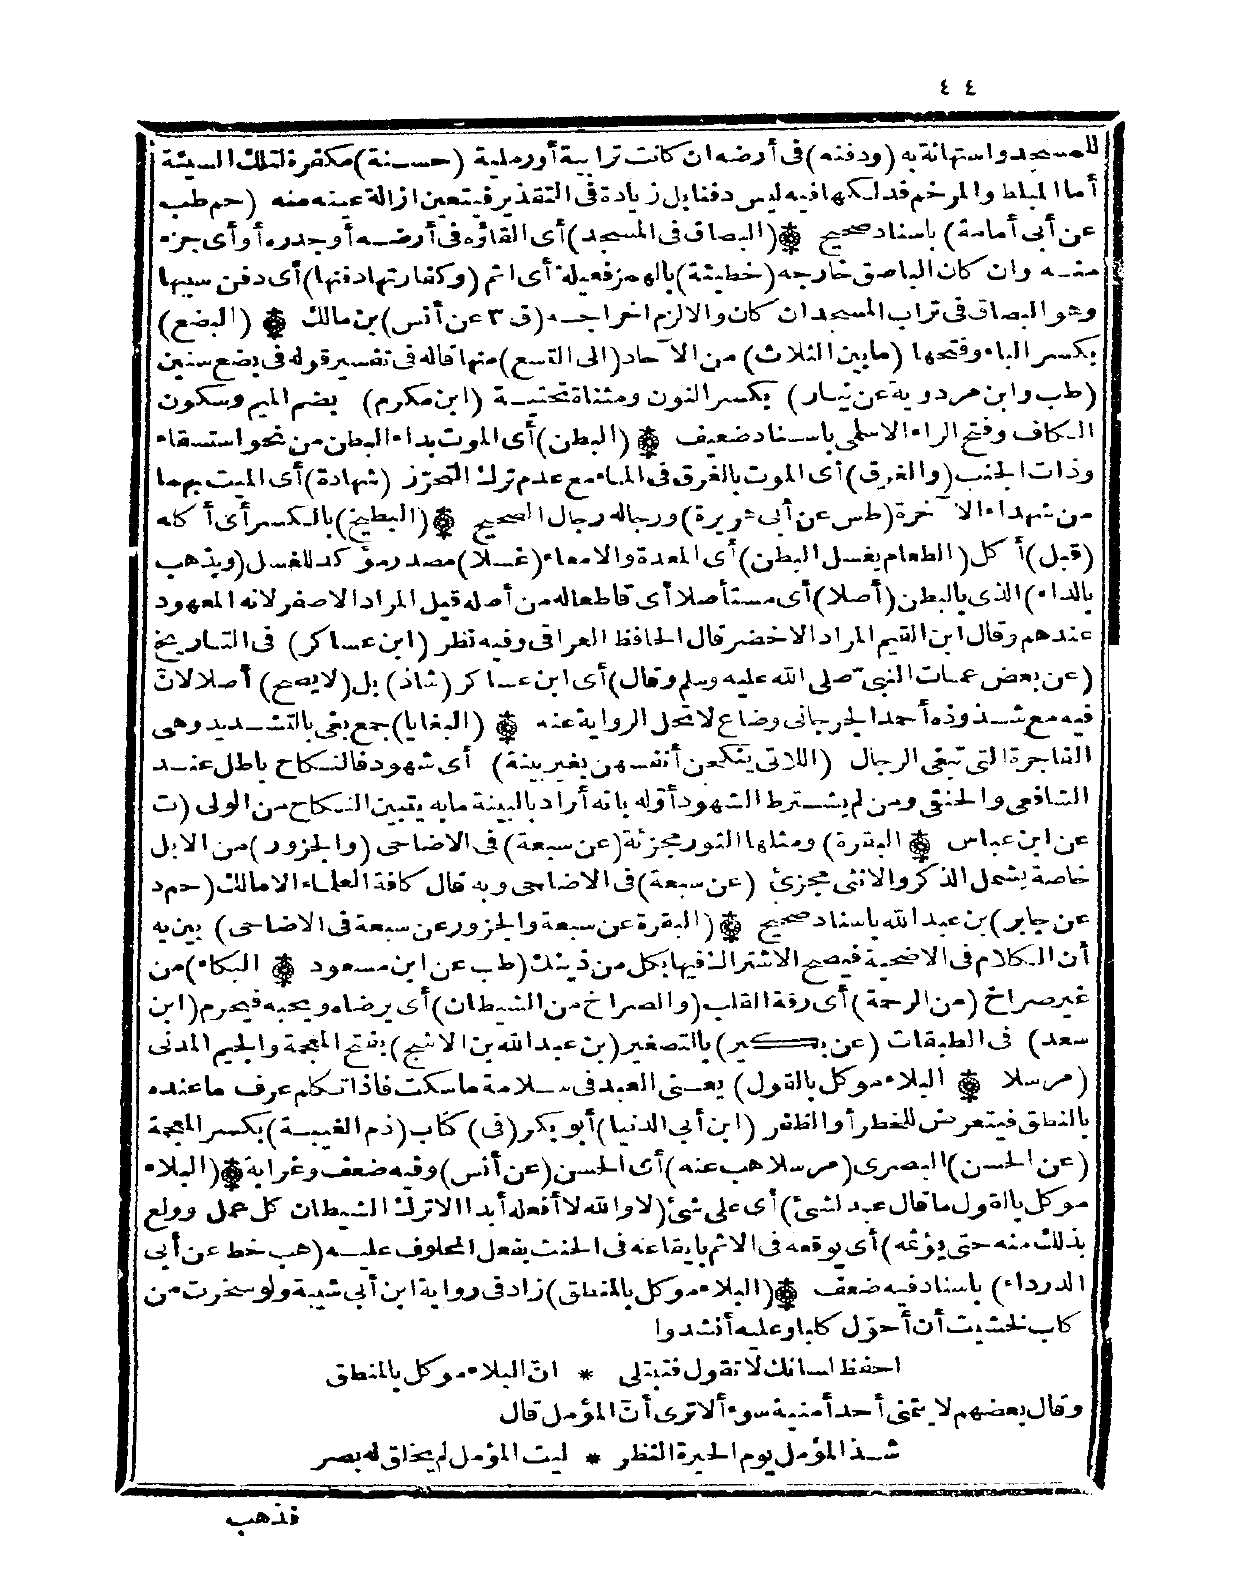 ٤٤
للمسجد واستهانة به (ودفنه) فى أرضه ان كانت ترابية أو رملية (حسنة) مكفرة لتلك السيئة
أما المبلط والمرخم فدلكها فيه ليس دفنا بل زيادة فى التقذير فيتعين ازالة عينه منه (حم طب
عن أبى أمامة) باسناد صحيح ۞ (البصاق فى المسجد) أى القاؤه فى أرضه أو جدره أو أى جزء
منه وان كان الباصق خارجه (خطيئة) بالهمز فعيلة أى اثم (وكفارتها دفنها) أى دفن سببها
وهو البصاق فى تراب المسجد ان كان والا لزم اخراجه (ق ٣ عن أنس) بن مالك ۞ (البضع)
بكسر الباء وفتحها (ما بين الثلاث) من الآحاد (الى التسع) منها قاله فى تفسير قوله فى بضع سنين
(طب وابن مردوية عن نيار) بكسر النون ومثناة تحتية (ابن مكرم) بضم الميم وسكون
الكاف وفتح الراء الاسلمى باسناد ضعيف ۞ (البطن) أى الموت بداء البطن من نحو استسقاء
وذات الجنب (والغرق) أى الموت بالغرق فى الماء مع عدم ترك التحرّز (شهادة) أى الميت بهما
من شهداء الآخرة (طس عن أبى هريرة) ورجاله رجال الصحيح ۞ (البطيخ) بالكسر أى أكله
(قبل) أكل (الطعام يغسل البطن) أى المعدة والامعاء (غسلا) مصدر مؤكد للغسل (ويذهب
بالداء) الذى بالبطن (أصلا) أى مستأصلا أى قاطعا له من أصله قيل المراد الاصفر لانه المعهود
عندهم وقال ابن القيم المراد الاخضر قال الحافظ العراقى وفيه نظر (ابن عساكر) فى التاريخ
(عن بعض عمات النبىّ صلى الله عليه وسلم وقال) أى ابن عساكر (شاذ) بل (لا يصح) أصلا لانّ
فيه مع شذوذه أحمد الجرجانى وضاع لا تحل الرواية عنه ۞ (البغايا) جمع بغى بالتشديد وهى
الفاجرة التى تبغى الرجال (اللاتى ينكحن أنفسهن بغير بينة) أى شهود فالنكاح باطل عند
الشافعى والحنفى ومن لم يشترط الشهود أوّله بانه أراد بالبينة ما به يتبين النكاح من الولى (ت
عن ابن عباس ۞ البقرة) ومثلها الثور مجزئة (عن سبعة) فى الاضاحى (والجزور) من الابل
خاصة يشمل الذكر والانثى مجزئ (عن سبعة) فى الاضاحى وبه قال كافة العلماء الا مالك (حم د
عن جابر) بن عبد الله باسناد صحيح ۞ (البقرة عن سبعة والجزور عن سبعة فى الاضاحى) بين به
أن الكلام فى الاضحية فيصح الاشتراك فيها بكل من ذينك (طب عن ابن مسعود ۞ البكاء) من
غير صراخ (من الرحمة) أى رقة القلب (والصراخ من الشيطان) أى يرضاه ويحبه فيحرم (ابن
سعد) فى الطبقات (عن بكير) بالتصغير (بن عبد الله بن الاشج) بفتح المعجمة والجيم المدنى
(مرسلا ۞ البلاء موكل بالقول) يعنى العبد فى سلامة ما سكت فاذا تكلم عرف ما عنده
بالنطق فيتعرض للخطر أو الظفر (ابن أبى الدنيا) أبو بكر (فى) كتاب (ذم الغيبة) بكسر المعجمة
(عن الحسن) البصرى (مرسلا هب عنه) أى الحسن (عن أنس) وفيه ضعف وغرابة ۞ (البلاء
موكل بالقول ما قال عبد لشئ) أى على شئ (لا والله لا أفعله أبدا الا ترك الشيطان كل عمل وولع
بذلك منه حتى يؤثمه) أى يوقعه فى الاثم بايقاعه فى الحنث بفعل المحلوف عليه (هب خط عن أبى
الدرداء) باسناد فيه ضعف ۞ (البلاء موكل بالمنطق) زاد فى رواية ابن أبى شيبة ولو سخرت من
كلب لخشيت أن أحوّل كلبا وعليه أنشدوا
احفظ لسانك لا تقول فتبتلى * انّ البلاء موكل بالمنطق
وقال بعضهم لا يتمنى أحد أمنية سوء ألا ترى أنّ المؤمل قال
شف المؤمل يوم الحيرة النظر * ليت المؤمل لم يخلق له بصر
فذهب